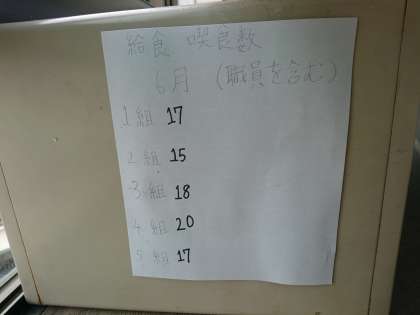 給食 喫食数
6月 (職員を含む)
1組 17
2組 15
3組 18
4組 20
5組 17